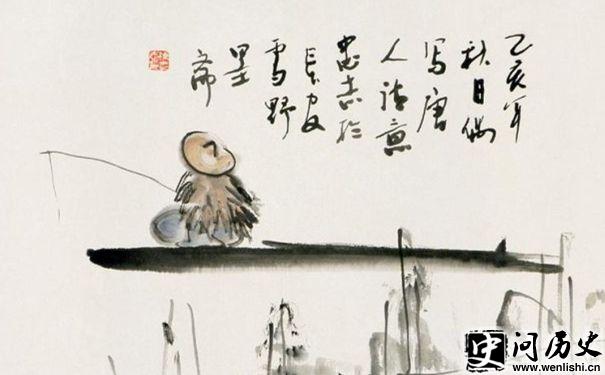 乙亥年
秋日偶
写唐
人诗意
忠志於
长安
雪野
墨
斋
史 问历史
www.wenlishi.cn